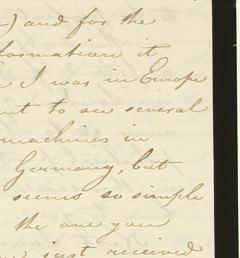 -) and for the
formation it
I was in Europe
nt to see several
machines in
Germany, but
seems so simple
the one you
just received